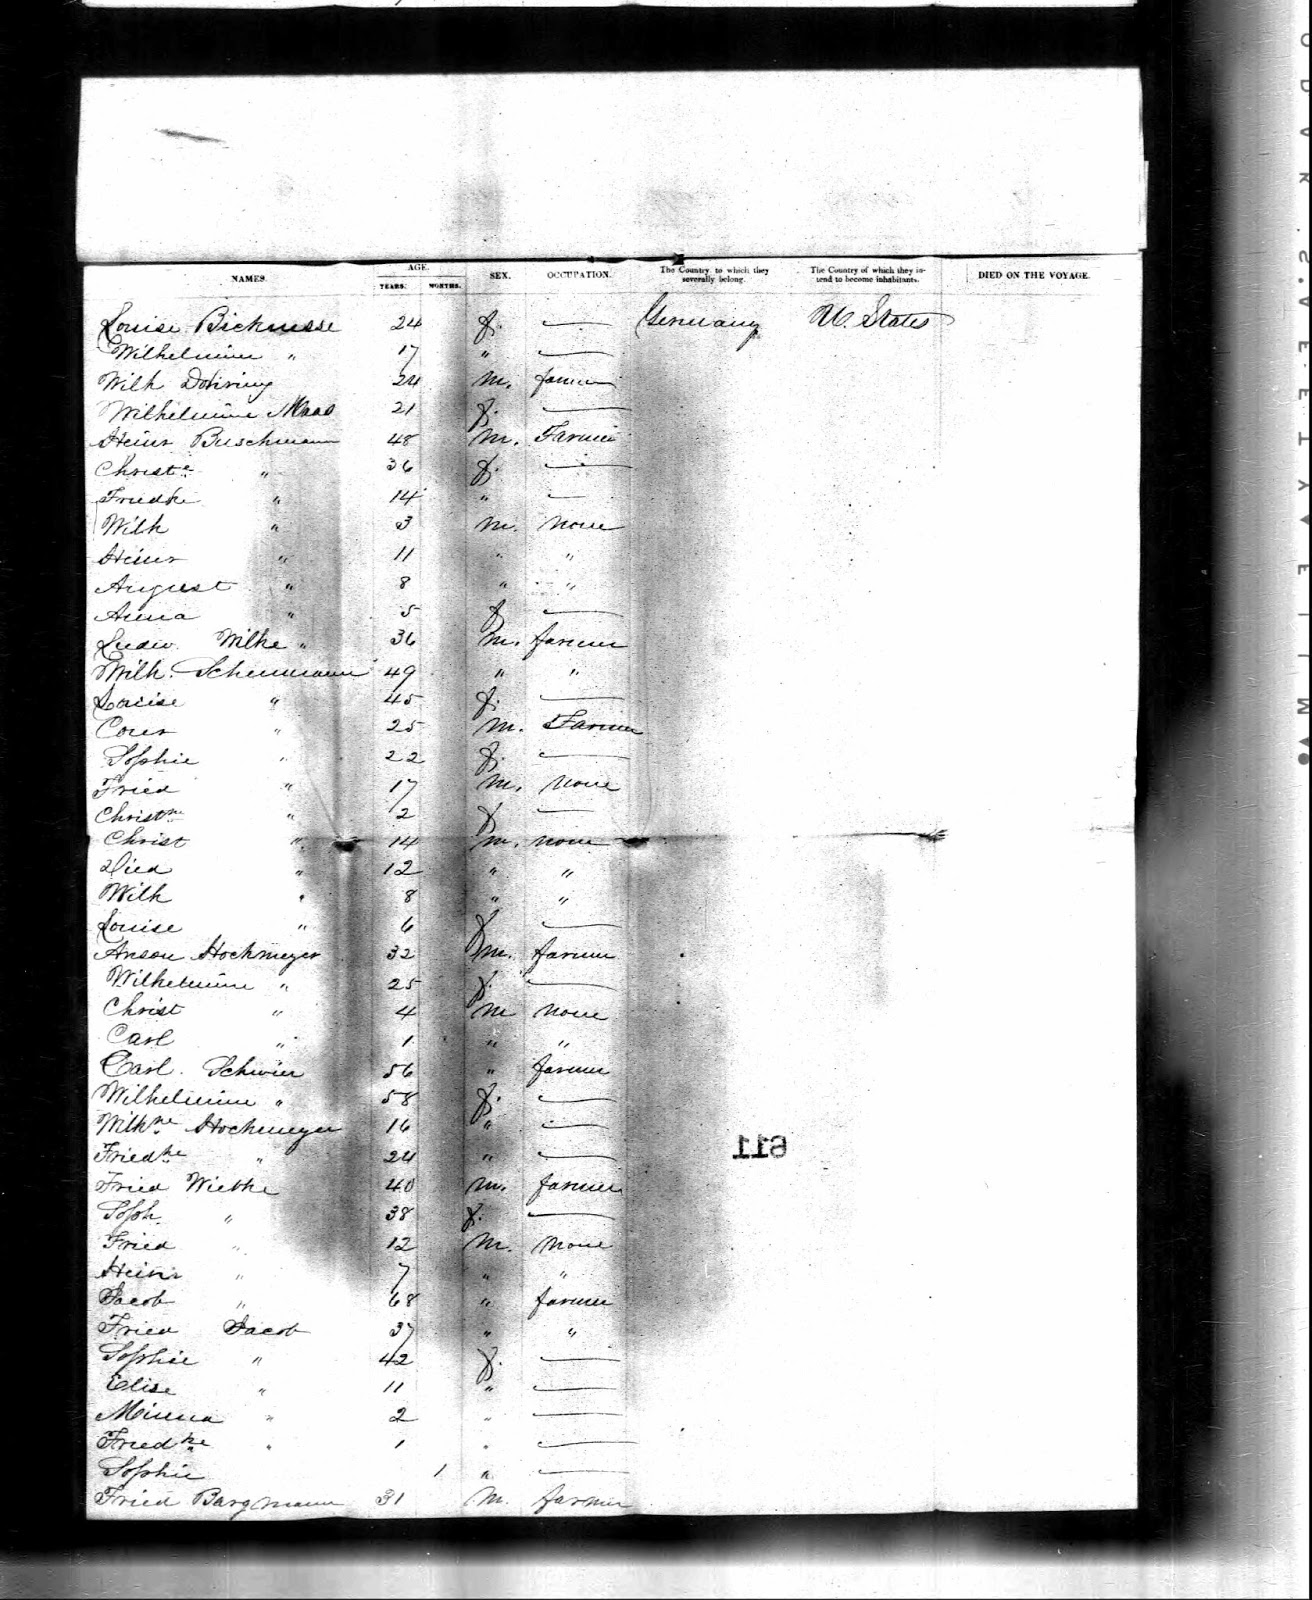 NAMES. AGE. YEARS. MONTHS. SEX. OCCUPATION. The Country to which they severally belong. The Country of which they intend to become inhabitants. DIED ON THE VOYAGE.
Louise Bicknesse 24 f. — Germany U. States
Wilhelmine " 17 " —
Wilh Dohring 24 m. farmer
Wilhelmine Maas 21 f. —
Heinr Buschmann 48 m. Farmer
Christe " 36 f. —
Friedke " 14 " —
Wilh " 3 m. none
Heinr " 11 " "
August " 8 " "
Anna " 5 f. —
Ludw. Wilke " 36 m. farmer
Wilh. Schunmann 49 " "
Louise " 45 f. —
Conr " 25 m. Farmer
Sophie " 22 f. —
Fried " 17 m. none
Christne " 2 f —
Christ " 14 m. none
Died " 12 " "
Wilh " 8 " "
Louise " 6 f —
Anson Hockmeyer 32 m. farmer
Wilhelmine " 25 f. —
Christ " 4 m none
Carl " 1 " "
Carl. Schwier 56 " farmer
Wilhelmine " 58 f. —
Wilhne Hockmeyer 16 " —
Friedke " 24 " —
Fried Wiebke 40 m. farmer
Soph. " 38 f. —
Fried " 12 m. none
Heinr " 7 " "
Jacob " 68 " farmer
Fried Jacob 37 " "
Sophie " 42 f. —
Elise " 11 " —
Minna " 2 " —
Friedke " 1 " —
Sophie 1 " —
Fried Bargmann 31 m. farmer
611